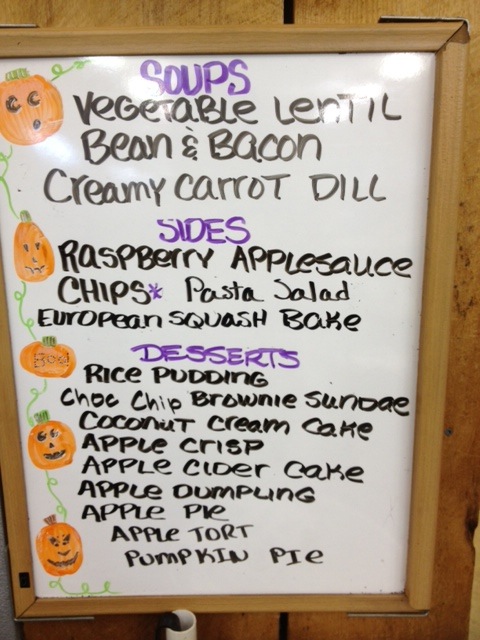 SOUPS
VEGETABLE LENTIL
Bean & Bacon
Creamy CARROT DILL
SIDES
RASPBERRY APPLESAUCE
CHIPS* Pasta Salad
EUROPEAN SQUASH BAKE
Boo!
DESSERTS
RICE PUDDING
Choc Chip Brownie Sundae
Coconut Cream Cake
APPLE CRISP
APPLE CIDER CAKE
APPLE DUMPLING
APPLE PIE
APPLE TORT
PUMPKIN PIE